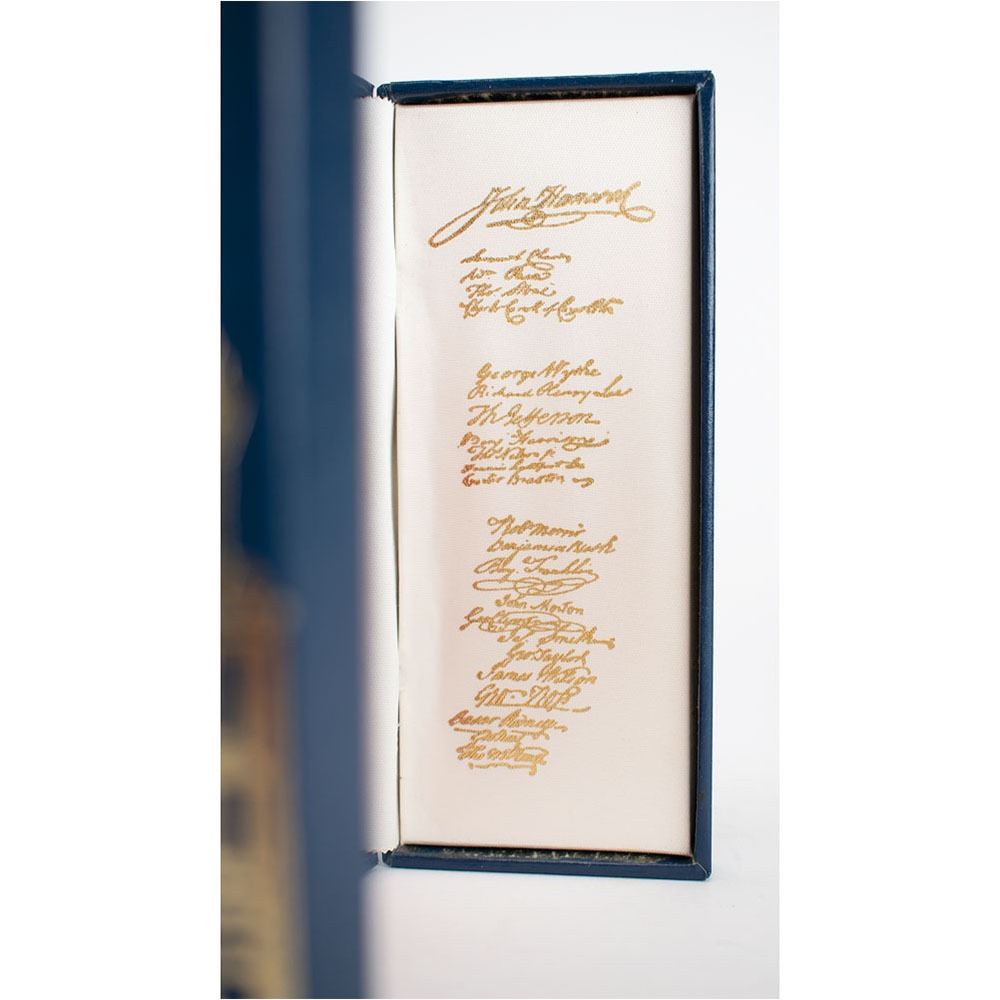 John Hancock
Samuel Chase
Wm. Paca
Thos. Stone
Charles Carroll of Carrollton
George Wythe
Richard Henry Lee
Th Jefferson
Benj Harrison
Thos Nelson jr.
Francis Lightfoot Lee
Carter Braxton
Robt Morris
Benjamin Rush
Benj. Franklin
John Morton
Geo Clymer
Jas. Smith
Geo. Taylor
James Wilson
Geo. Ross
Caesar Rodney
Geo Read
Tho M:Kean